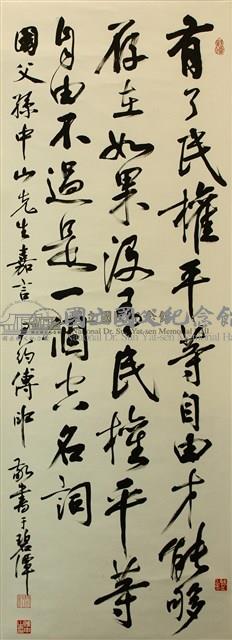 有了民權平等自由才能夠
存在如果沒了民權平等
自由不過是一個空名詞
國父孫中山先生嘉言 約傅 敬書于碧潭
國立國父紀念館
National Dr. Sun Yat-sen Memorial Hall